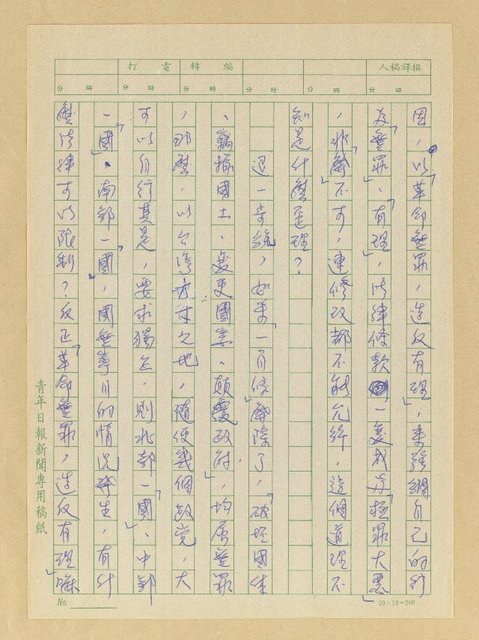 投譯稿人
編輯
電打
時 分
時 分
時 分
時 分
因，以「革命無罪，造反有理」，来強調自己的行
為「無罪」、「有理」，法律條款一变成為「極罪大惡」
，非「廢」不可，連修改都不能允許，這個道理不
知是什麼歪理？
退一步說，如果「一百條」廢除了，「破壞國体
、竊據國土、変更國憲、顛覆政府」，均属無罪
，那麼，以台灣方寸之地，随便幾個政党，大
可以自行其是，要求獨立，則北部一「國」、中部
一「國」、南部一「國」，國無寧日的情況發生，有什
麼法律可以限制？反正「革命無罪，造反有理」嘛
青年日報新聞專用稿紙
No.
20×10=200